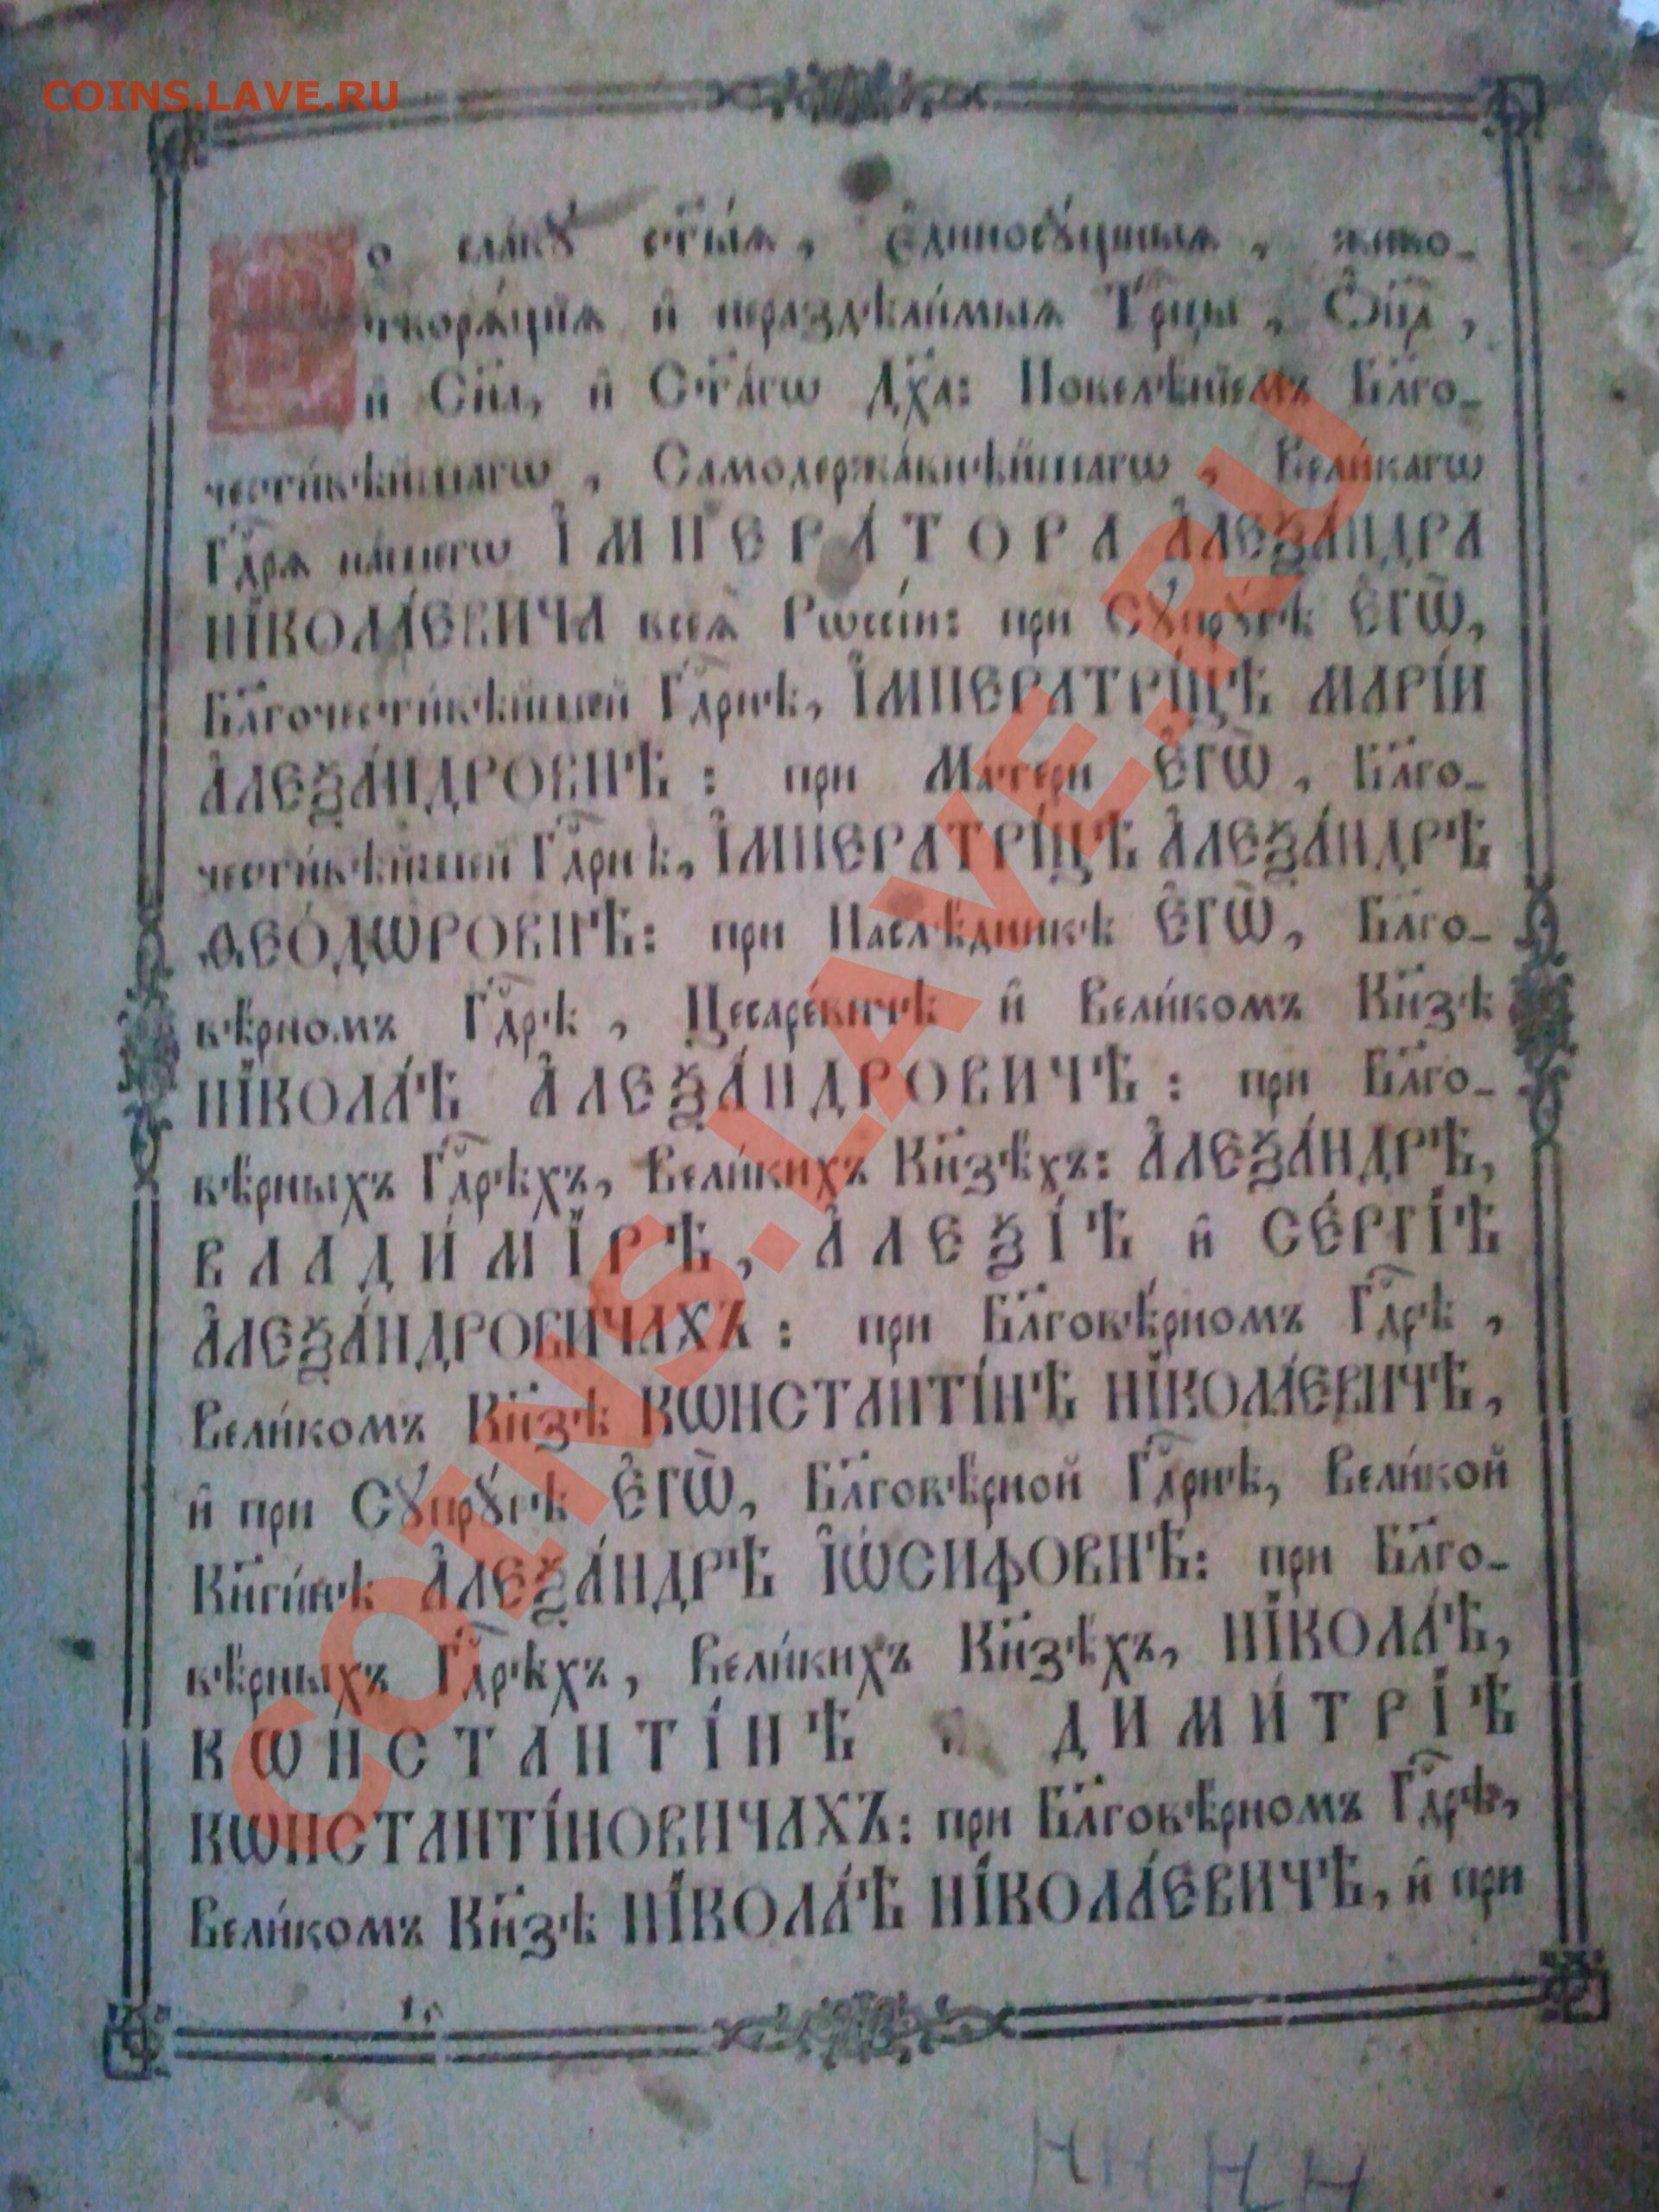 COINS.LAVE.RU
Во сла́вꙋ ст҃ы́ѧ, є҆диносꙋ́щныѧ, живо-
творѧ́щїѧ и҆ нераздѣли́мыѧ Трⷪ҇цы, Ѻ҆ц҃а̀,
и҆ Сн҃а, и҆ Ст҃а́гѡ Дх҃а: Повелѣ́нїемъ Бл҃го-
чести́вѣйшагѡ, Самодержа́внѣйшагѡ, Вели́кагѡ
Гдⷭ҇рѧ на́шегѡ І҆МПЕРА́ТОРА А҆ЛЕѮА́НДРА
НІКОЛА́ЕВИЧА всеѧ̀ Рѡссі́и: при Сꙋпрꙋ́гѣ Е҆ГѠ̀,
Бл҃гочести́вѣйшей Гдⷭ҇рнѣ, І҆МПЕРАТРІ́ЦѢ МАРІ́И
А҆ЛЕѮА́НДРОВНѢ: при Ма́тери Е҆ГѠ̀, Бл҃го-
чести́вѣйшей Гдⷭ҇рнѣ, І҆МПЕРАТРІ́ЦѢ А҆ЛЕѮА́НДРѢ
ѲЕО́ДѠРОВНѢ: при Наслѣ́дникѣ Е҆ГѠ̀, Бл҃го-
вѣ́рномъ Гдⷭ҇рѣ, Цесаре́вичѣ и҆ Вели́комъ Кн҃зѣ
НІКОЛА́Ѣ А҆ЛЕѮА́НДРОВИЧѢ: при Бл҃го-
вѣ́рныхъ Гдⷭ҇рѣхъ, Вели́кихъ Кн҃зѣ́хъ: А҆ЛЕѮА́НДРѢ,
ВЛАДИ́МІРѢ, А҆ЛЕѮІ́Ѣ и҆ СЕ́РГІѢ
А҆ЛЕѮА́НДРОВИЧАХЪ: при Бл҃говѣ́рномъ Гдⷭ҇рѣ,
Вели́комъ Кн҃зѣ КѠНСТАНТІ́НѢ НІКОЛА́ЕВИЧѢ,
и҆ при Сꙋпрꙋ́гѣ Е҆ГѠ̀, Бл҃говѣ́рной Гдⷭ҇рнѣ, Вели́кой
Кн҃ги́нѣ А҆ЛЕѮА́НДРѢ І҆Ѡ́СИФОВНѢ: при Бл҃го-
вѣ́рныхъ Гдⷭ҇рѣхъ, Вели́кихъ Кн҃зѣ́хъ, НІКОЛА́Ѣ,
КѠНСТАНТІ́НѢ и҆ ДИМИ́ТРІѢ
КѠНСТАНТІ́НОВИЧАХЪ: при Бл҃говѣ́рномъ Гдⷭ҇рѣ,
Вели́комъ Кн҃зѣ НІКОЛА́Ѣ НІКОЛА́ЕВИЧѢ, и҆ при
Н Н Н Н
COINS.LAVE.RU